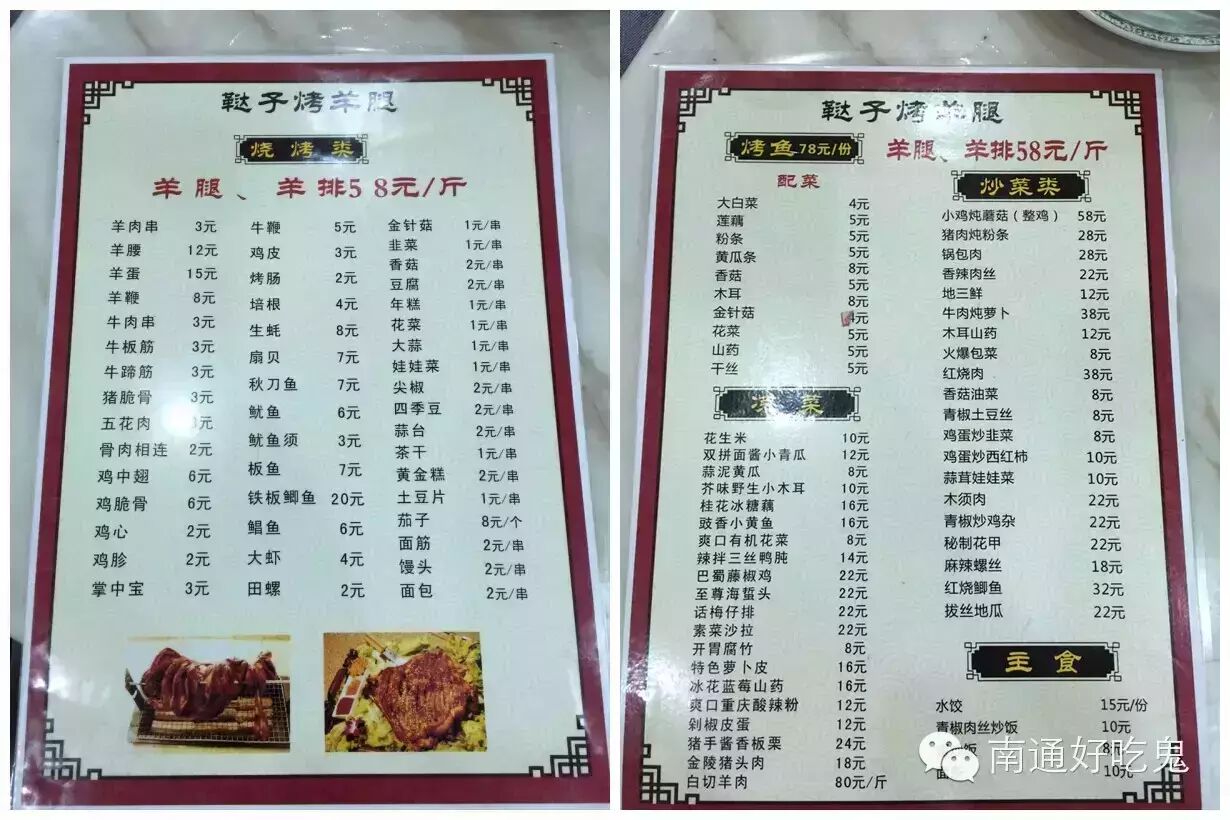 鞑子烤羊腿
烧烤类
羊腿、羊排58元/斤
羊肉串 3元
羊腰 12元
羊蛋 15元
羊鞭 8元
牛肉串 3元
牛板筋 3元
牛蹄筋 3元
猪脆骨 3元
五花肉 元
骨肉相连 2元
鸡中翅 6元
鸡脆骨 6元
鸡心 2元
鸡胗 2元
掌中宝 3元
牛鞭 5元
鸡皮 3元
烤肠 2元
培根 4元
生蚝 8元
扇贝 7元
秋刀鱼 7元
鱿鱼 6元
鱿鱼须 3元
板鱼 7元
铁板鲫鱼 20元
鲳鱼 6元
大虾 4元
田螺 2元
金针菇 1元/串
韭菜 1元/串
香菇 2元/串
豆腐 2元/串
年糕 1元/串
花菜 1元/串
大蒜 1元/串
娃娃菜 1元/串
尖椒 2元/串
四季豆 2元/串
蒜台 2元/串
茶干 1元/串
黄金糕 2元/串
土豆片 1元/串
茄子 8元/个
面筋 2元/串
馒头 2元/串
面包 2元/串
鞑子烤羊腿
烤鱼78元/份
羊腿、羊排58元/斤
配菜
大白菜
莲藕
粉条
黄瓜条
香菇
木耳
金针菇
花菜
山药
干丝
4元
5元
5元
5元
8元
5元
8元
4元
5元
5元
5元
菜
花生米 10元
双拼面酱小青瓜 12元
蒜泥黄瓜 8元
芥味野生小木耳 10元
桂花冰糖藕 16元
豉香小黄鱼 16元
爽口有机花菜 8元
辣拌三丝鸭肫 14元
巴蜀藤椒鸡 22元
至尊海蜇头 22元
话梅仔排 22元
素菜沙拉 22元
开胃腐竹 8元
特色萝卜皮 16元
冰花蓝莓山药 16元
爽口重庆酸辣粉 12元
剁椒皮蛋 12元
猪手酱香板栗 24元
金陵猪头肉 18元
白切羊肉 80元/斤
炒菜类
小鸡炖蘑菇（整鸡） 58元
猪肉炖粉条 28元
锅包肉 28元
香辣肉丝 22元
地三鲜 12元
牛肉炖萝卜 38元
木耳山药 12元
火爆包菜 8元
红烧肉 38元
香菇油菜 8元
青椒土豆丝 8元
鸡蛋炒韭菜 8元
鸡蛋炒西红柿 10元
蒜茸娃娃菜 10元
木须肉 22元
青椒炒鸡杂 22元
秘制花甲 22元
麻辣螺丝 18元
红烧鲫鱼 32元
拔丝地瓜 22元
主食
水饺 15元/份
青椒肉丝炒饭 10元
饭 8元
面 10元
南通好吃鬼